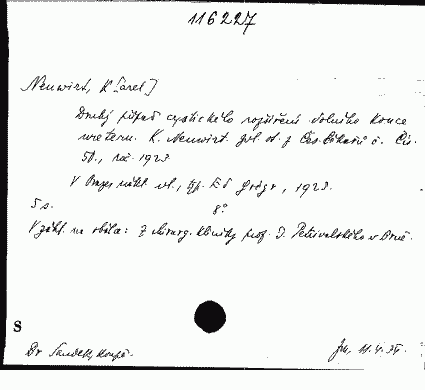 116227
Neuwirt, K[arel]
Druhý případ cystického rozšíření dolního konce
ureteru. K. Neuwirt. Zvl. ot. z Čas. lékařů č. Čís.
50., roč. 1923
V Praze, nákl. vl., typ. Ed. Grégr, 1923.
5 s. 8°
V záhl. na obálce: Z chirurg. kliniky prof. J. Petřivalského v Brně.
S
Dr 11.4.